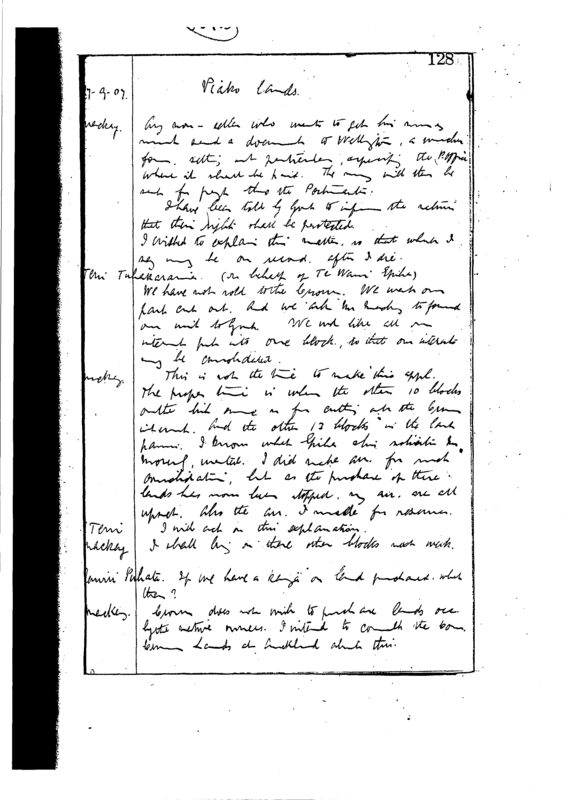 128
7-9-07. Piako Lands.
Mackay. Any non-seller who wants to get his money
must send a document to Wellington, a voucher
form, setting out particulars, specifying the P. Office
where it shall be paid. The money will then be
sent for payt thro the Postmaster.
I have been told by Govt to inform the natives
that their rights shall be protected.
I wished to explain this matter, so that what I
say may be on record after I die.
Teni Tuhakaraina. (on behalf of Te Wani Epiha)
We have not sold to the Crown. We want our
part cut out. And we ask Mr Mackay to forward
our wish to Govt. We wd like all our
interest put into one block, so that our interests
may be consolidated.
Mackay. This is not the time to make this appl.
The proper time is when the other 10 blocks
come on for cutting out the Crown
interest. And the other 13 blocks in the
I know what Epiha
wanted. I did make arr. for such
consolidation, but as the purchase of these
lands has now been stopped, my arr. are all
upset. Also the arr. I made for reserves.
Teni I will act on this explanation.
Mackay I shall bring on these other blocks next week.
If we have a kainga on land purchased what
then?
Mackay. Crown does not wish to purchase lands occ.
by the native owners. I intend to consult the Com.
Crown Lands at Auckland about this.